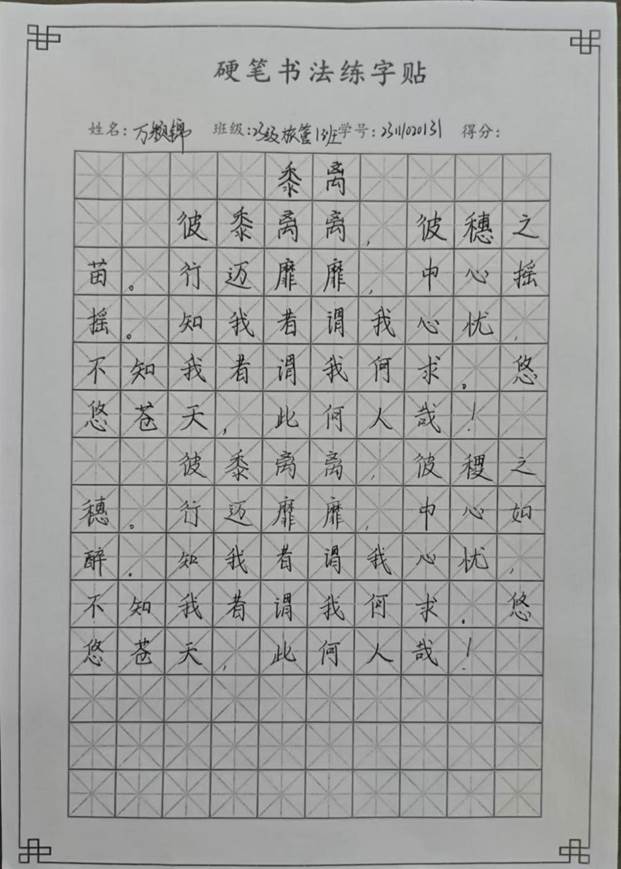 硬笔书法练字贴
姓名:万颖锦 班级:23级旅管1班 学号:2311020131 得分:
黍离
彼黍离离,彼穗之
苗。行迈靡靡,中心摇
摇。知我者谓我心忧,
不知我者谓我何求。悠
悠苍天,此何人哉!
彼黍离离,彼稷之
穗。行迈靡靡,中心如
醉.知我者谓我心忧,
不知我者谓我何求.悠
悠苍天,此何人哉!